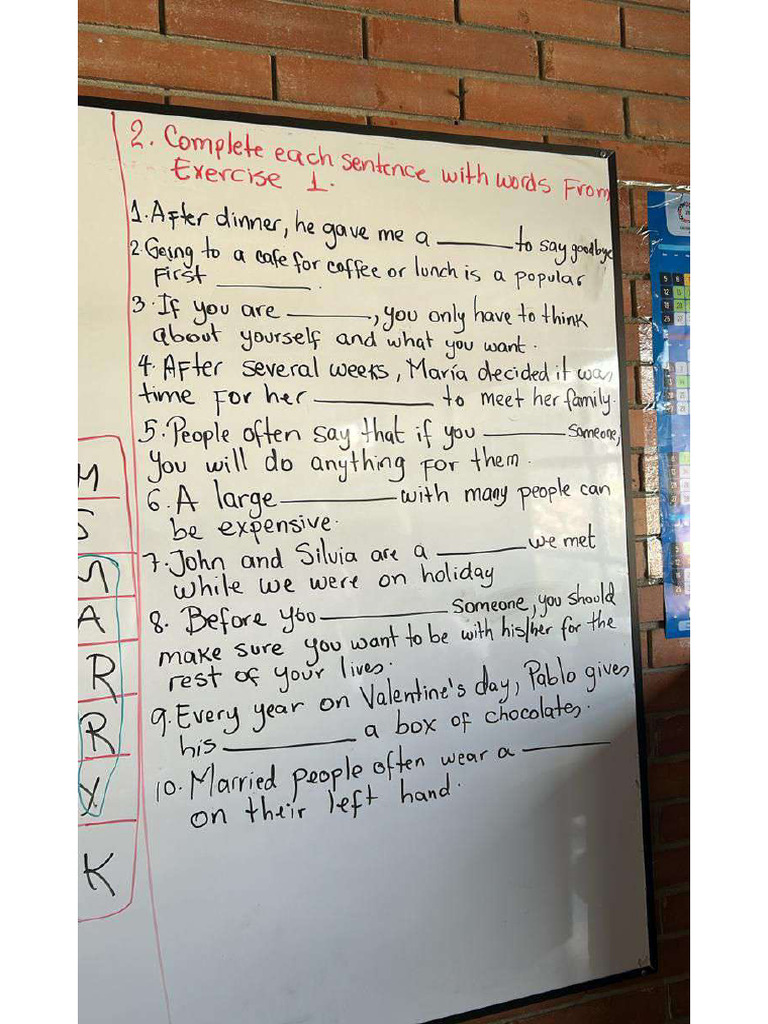 2. Complete each sentence with words From
Exercise 1.
1. After dinner, he gave me a ______ to say goodbye
2. Going to a cafe for coffee or lunch is a popular
First ______.
3. If you are ______, you only have to think
about yourself and what you want.
4. After several weeks, María decided it was
time For her ______ to meet her family.
5. People often say that if you ______ someone,
you will do anything for them.
6. A large ______ with many people can
be expensive.
7. John and Silvia are a ______ we met
while we were on holiday
8. Before you ______ someone, you should
make sure you want to be with his/her for the
rest of your lives.
9. Every year on Valentine's day, Pablo gives
his ______ a box of chocolates.
10. Married people often wear a ______
on their left hand.
M
S
M
A
R
R
Y
K